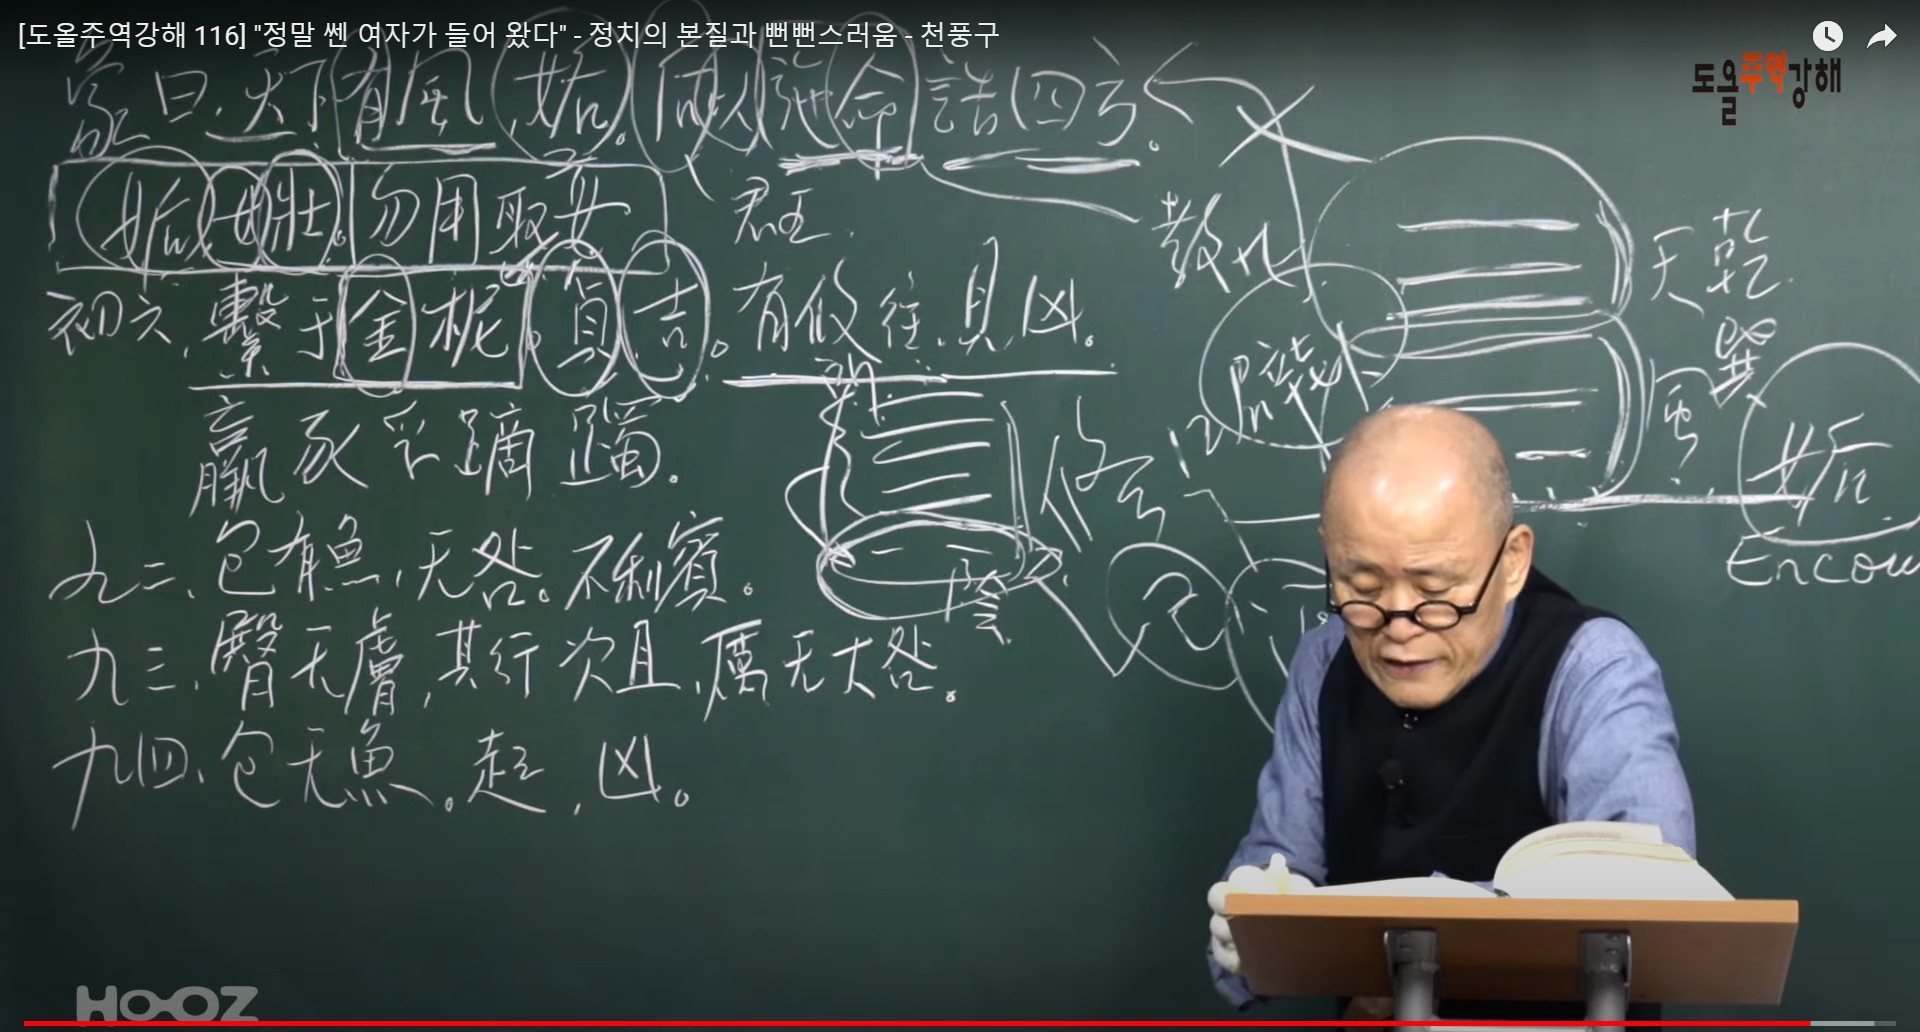 [도올주역강해 116] "정말 쎈 여자가 들어 왔다" - 정치의 본질과 뻔뻔스러움 - 천풍구
도올주역강해
象曰, 天下有風, 姤。后以施命誥四方。
姤, 女壯。勿用取女
君王
初六, 繫于金柅。貞吉。有攸往, 見凶。
羸豕孚蹢躅。
九二, 包有魚, 无咎。不利賓。
九三, 臀无膚, 其行次且, 厲无大咎。
九四, 包无魚。起, 凶。
敎化
天乾
風巽
姤
Encou
陰
HOOZ